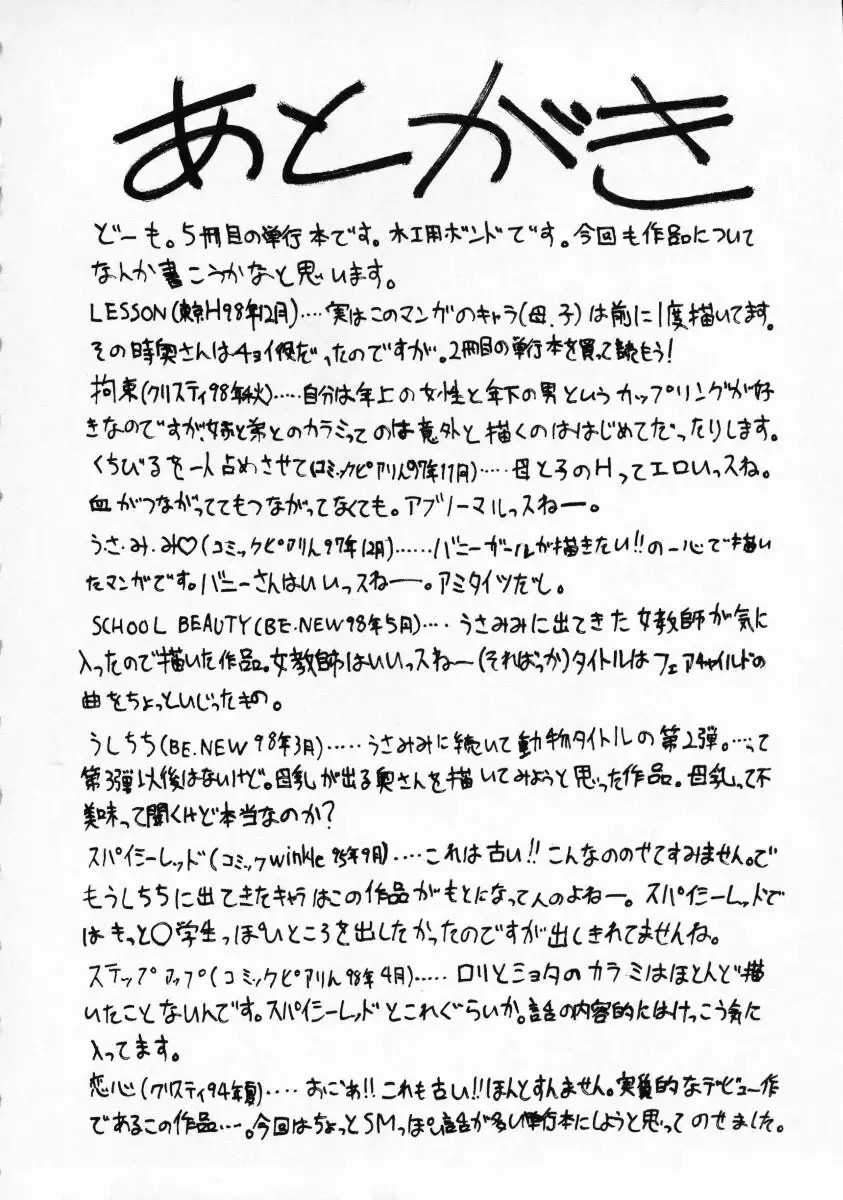 あとがき
どーも。5冊目の単行本です。木工用ボンドです。今回も作品について
なんか書こうかなと思います。
LESSON(東京H98年12月)‥‥実はこのマンガのキャラ(母、子)は前に1度描いてます。
その時奥さんはチョイ役だったのですが。2冊目の単行本を買って読もう!
拘束(クリスティ98年秋)‥‥‥自分は年上の女性と年下の男というカップリングが好
きなのですが、姉と弟とのカラミってのは意外と描くのははじめてだったりします。
くちびるを一人占めさせて(コミックピアリん97年11月)‥‥‥母と子のHってエロいっスね。
血がつながっててもつながってなくても。アブノーマルっスねー。
うさ・み・み♡(コミックピアリん97年12月)‥‥‥バニーガールが描きたい!!の一心で描い
たマンガです。バニーさんはいいっスねー。アミタイツだし。
SCHOOL BEAUTY(BE.NEW98年5月)‥‥うさみみに出てきた女教師が気に
入ったので描いた作品。女教師はいいっスねー(そればっか)タイトルはフェアチャイルドの
曲をちょっといじったもの。
うしちち(BE.NEW98年3月)‥‥‥うさみみに続いて動物タイトルの第2弾。‥‥って
第3弾以後はないけど。母乳が出る奥さんを描いてみようと思った作品。母乳って不
美味って聞くけど本当なのか?
スパイシーレッド(コミックwinkle95年9月)‥‥これは古い!!こんなののせてすみません。で
もうしちちに出てきたキャラはこの作品がもとになってんのよねー。スパイシーレッドで
はもっと〇学生っぽいところを出したかったのですが出しきれてませんね。
ステップアップ(コミックピアリん98年4月)‥‥‥ロリとショタのカラミはほとんど描
いたことないんです。スパイシーレッドとこれぐらいか。話の内容的にはけっこう気に
入ってます。
恋心(クリスティ94年夏)‥‥おごあ!!これも古い!!ほんとすんません。実質的なデビュー作
であるこの作品‥‥。今回はちょっとSMっぽい話が多い単行本にしようと思ってのせました。